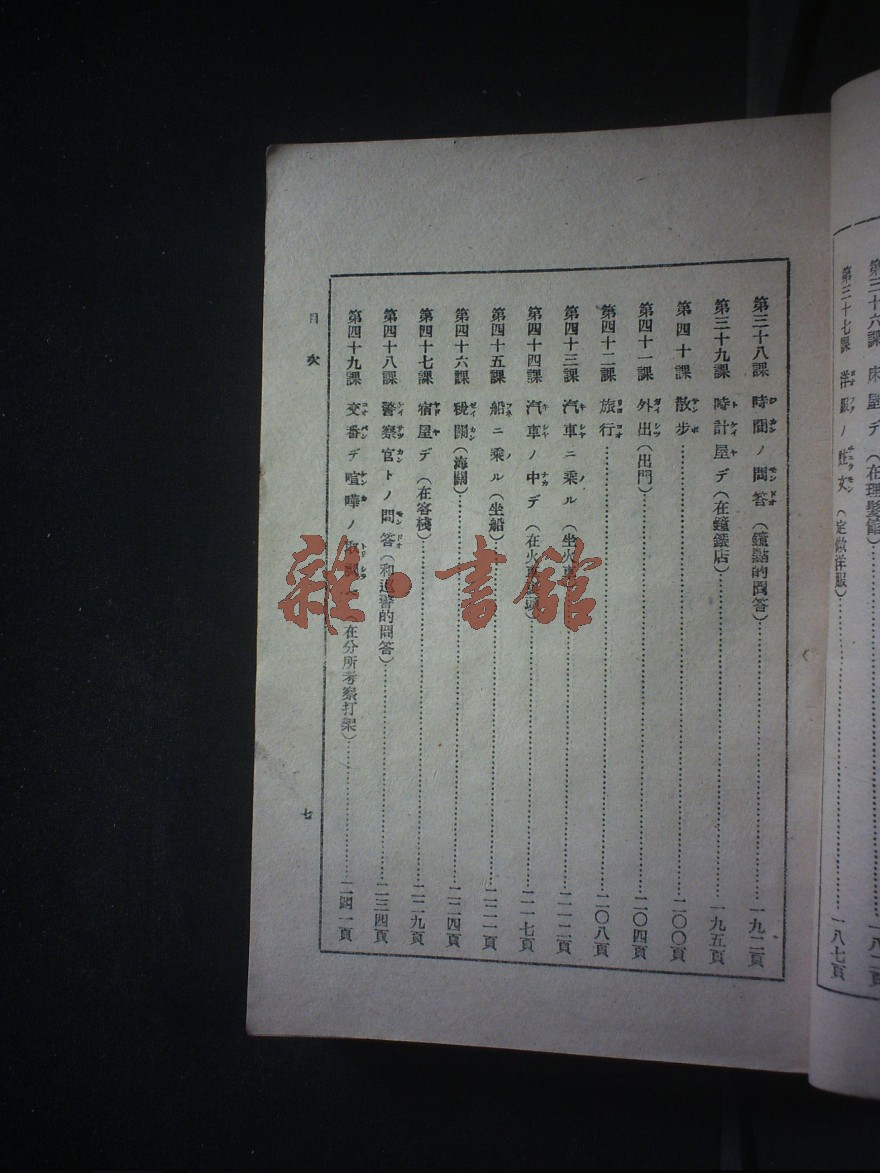 第三十六課 床屋デ(在理髮館)……一八二頁
第三十七課 洋服ノ註文(定做洋服)……一八七頁
第三十八課 時間ノ問答(鐘點的問答)……一九二頁
第三十九課 時計屋デ(在鐘錶店)……一九五頁
第四十課 散步……二〇〇頁
第四十一課 外出(出門)……二〇四頁
第四十二課 旅行……二〇八頁
第四十三課 汽車ニ乘ル(坐火車)……二一二頁
第四十四課 汽車ノ中デ(在火車裡頭)……二一七頁
第四十五課 船ニ乘ル(坐船)……二二一頁
第四十六課 稅關(海關)……二二四頁
第四十七課 宿屋デ(在客棧)……二二九頁
第四十八課 警察官トノ問答(和巡警的問答)……二三四頁
第四十九課 交番デ喧嘩ノ取調(在分所考察打架)……二四一頁
目次
七
雜·書館